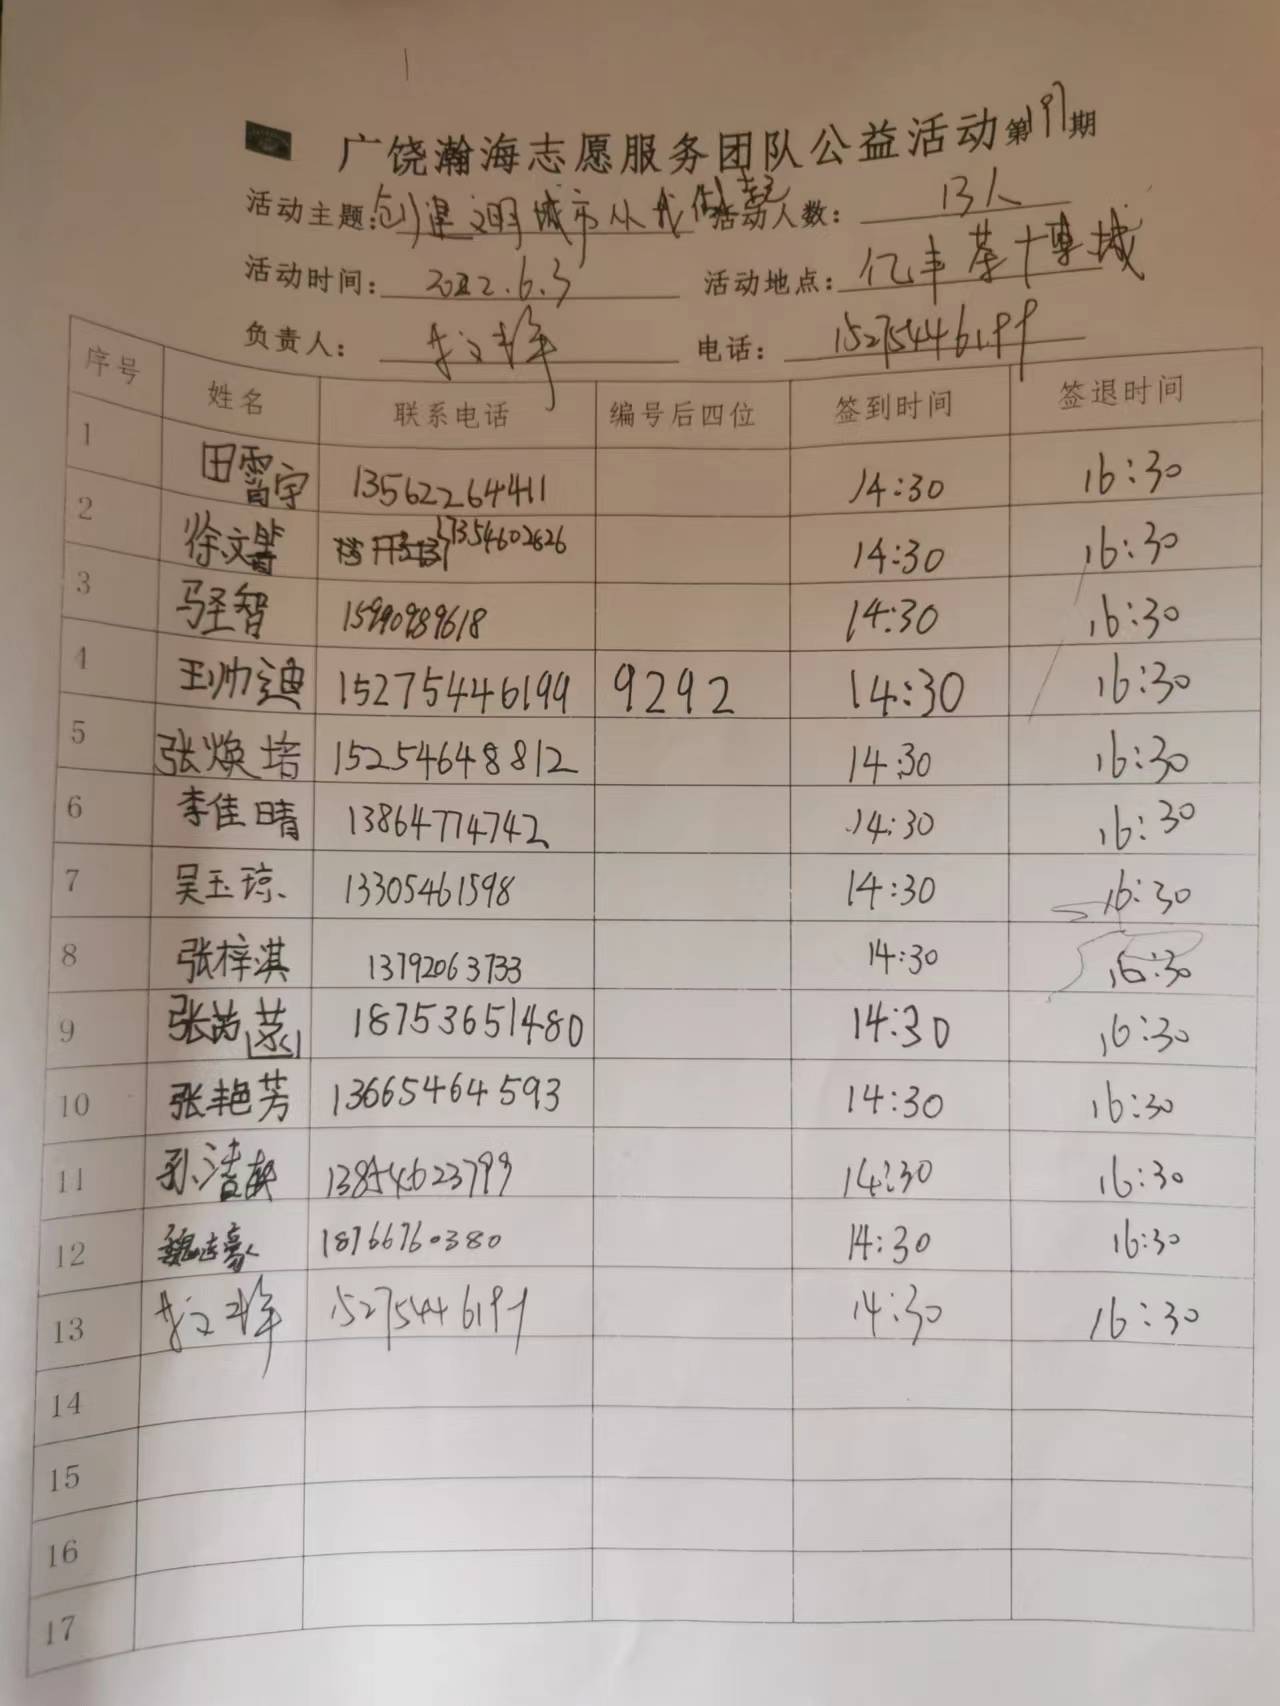 广饶瀚海志愿服务团队公益活动第197期
活动主题:创建文明城市从我做起 活动人数: 13人
活动时间: 2022.6.3 活动地点: 亿丰茶博城
负责人: 李文祥 电话: 15275446199
序号 姓名 联系电话 编号后四位 签到时间 签退时间
1 田霄宇 13562264411 14:30 16:30
2 徐文 17354602826 14:30 16:30
3 马圣智 14:30 16:30
4 王帅迪 15275446199 9292 14:30 16:30
5 张焕培 15254648812 14:30 16:30
6 李佳晴 13864774742 14:30 16:30
7 吴玉琼 13305461598 14:30 16:30
8 张梓淇 13792063733 14:30 16:30
9 张芮菡 18753651480 14:30 16:30
10 张艳芳 13665464593 14:30 16:30
11 孙洁 13854623799 14:30 16:30
12 魏志豪 18766760380 14:30 16:30
13 李文祥 15275446199 14:30 16:30
14
15
16
17